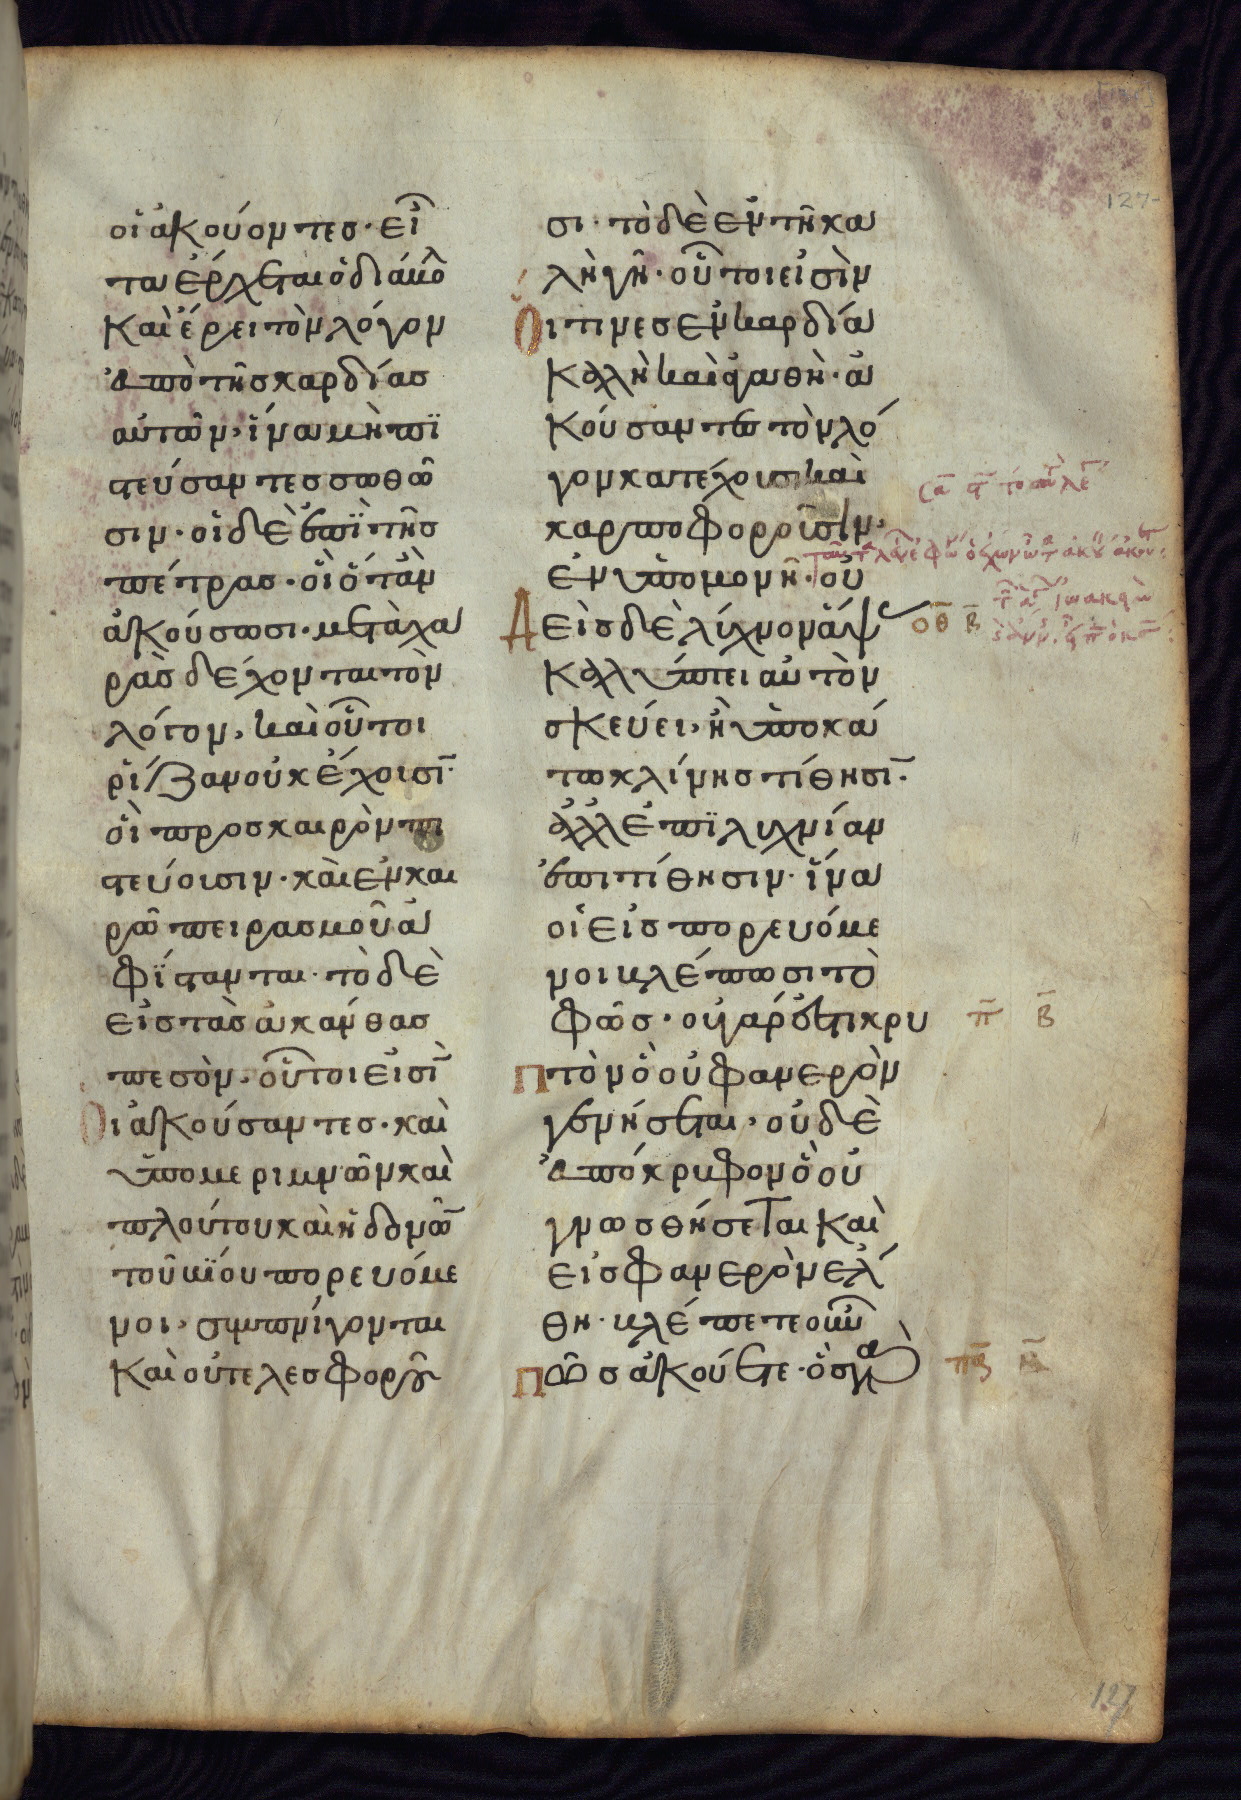 127
οἱ ἀκούοντες· εἶ
τα ἔρχεται ὁ διάβο
καὶ ἔρει τὸν λόγον
ἀπὸ τῆς καρδίας
αὐτῶν, ἵνα μὴ πϊ
στεύσαντες σωθῶ
σιν· οἱ δὲ ἐπὶ τῆς
πέτρας· οἳ ὅταν
ἀκούσωσι· μετὰ χα
ρᾶς δέχονται τὸν
λόγον, καὶ οὗτοι
ρίζαν οὐκ ἔχουσῑ·
οἳ προς καιρὸν πι
στεύουσιν· καὶ ἐν και
ρῶ πειρασμοῦ ἀ
φίστανται· τὸ δὲ
εἰς τὰς ἀκάνθας
πεσὸν, οὗτοι εἰσῒ
Οἱ ἀκούσαντες· καὶ
ὑπο μεριμνῶν καὶ
πλούτου καὶ ἡδονῶ
τοῦ βίου πορευόμε
νοι, συμπνίγονται
καὶ οὐ τελεσφοροῦ
σι· τὸ δὲ ἐν τῆ κα
λῆ γῆ· οὗτοι εἰσὶν
Οἵτινες ἐν καρδία
καλῆ καὶ ἀγαθῆ· ἀ
κούσαντες τὸν λό
γον κατέχουσι καὶ
καρποφοροῦσιν·
ἐν ὑπομονῆ· οὐ
Δεὶς δὲ λύχνον ἅψας
ΟΘ Β
καλύπτει αὐτὸν
σκεύει, ἢ ὑποκά
τω κλίνης τίθησῑ·
ἀλλ ἐπῒ λυχνίαν
ἐπιτίθησιν· ἵνα
οἱ εἰσπορευόμε
νοι βλέπωσι τὸ
φῶς· οὐ γάρ ἐστι κρυ
π Β
Πτὸν ὃ οὐ φανερὸν
γενήσεται, οὐδὲ
ἀπόκρυφον ὃ οὐ
γνωσθήσεται καὶ
εἰς φανερὸν ἔλ
θη· βλέπετε οὖν
Πῶς ἀκούετε· ὃς γὰρ
127